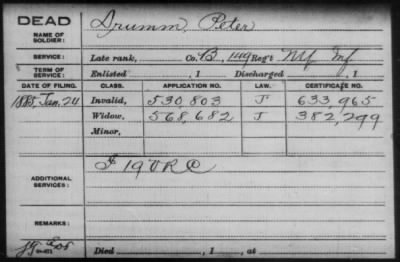 DEAD Drumm, Peter
NAME OF SOLDIER:
SERVICE: Late rank, Co. B, 149 Reg't NY Inf
TERM OF SERVICE: Enlisted , 1 Discharged , 1
DATE OF FILING. CLASS. APPLICATION NO. LAW. CERTIFICATE NO.
1885 Jan. 24 Invalid, 530,803 J 633,965
Widow, 568,682 J 382,299
Minor,
ADDITIONAL SERVICES: F 19 VRC
REMARKS:
Died , 1 , at